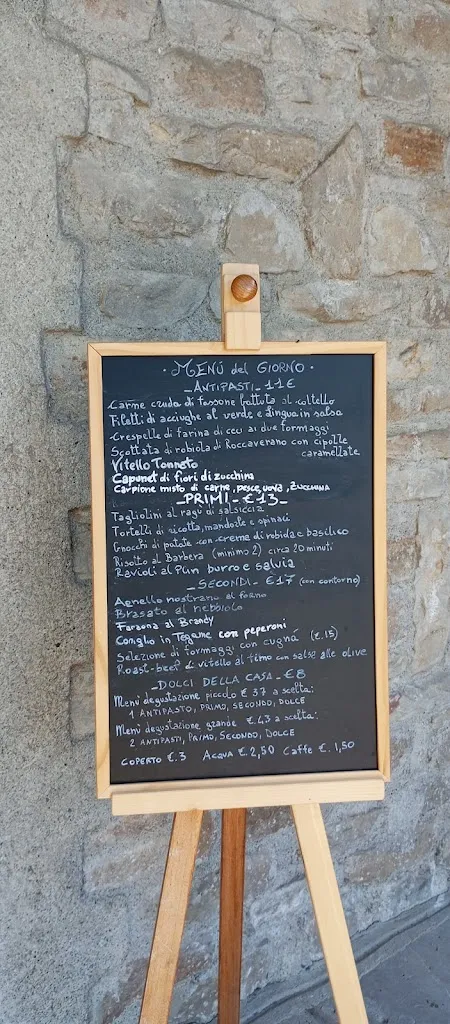 · MENÙ del GIORNO ·
_ ANTIPASTI _ 11€
Carne cruda di fassone battuta al coltello
Filetti di acciughe al verde e lingua in salsa
Crespelle di farina di ceci ai due formaggi
Scottata di robiola di Roccaverano con cipolle
caramellate
Vitello Tonnato
Capunet di fiori di zucchina
Carpione misto di carne, pesce, uova, ZUCCHINA
_ PRIMI - €13 _
Tagliolini al ragù di salsiccia
Tortelli di ricotta, mandorle e spinaci
Gnocchi di patate con creme di robiola e basilico
Risotto al Barbera (minimo 2) circa 20 minuti
Ravioli al Plin burro e salvia
_ SECONDI - €17 (con contorno)
Agnello nostrano al forno
Brasato al nebbiolo
Faraona al Brandy
Coniglio in Tegame con peperoni
Selezione di formaggi con cugnà (€.15)
Roast-beef di vitello al timo con salsa alle olive
_ DOLCI DELLA CASA - €8
Menù degustazione piccolo € 37 a scelta:
1 ANTIPASTO, PRIMO, SECONDO, DOLCE
Menù degustazione grande €.43 a scelta:
2 ANTIPASTI, PRIMO, SECONDO, DOLCE
COPERTO €.3 ACQUA €.2,50 Caffe €.1,50